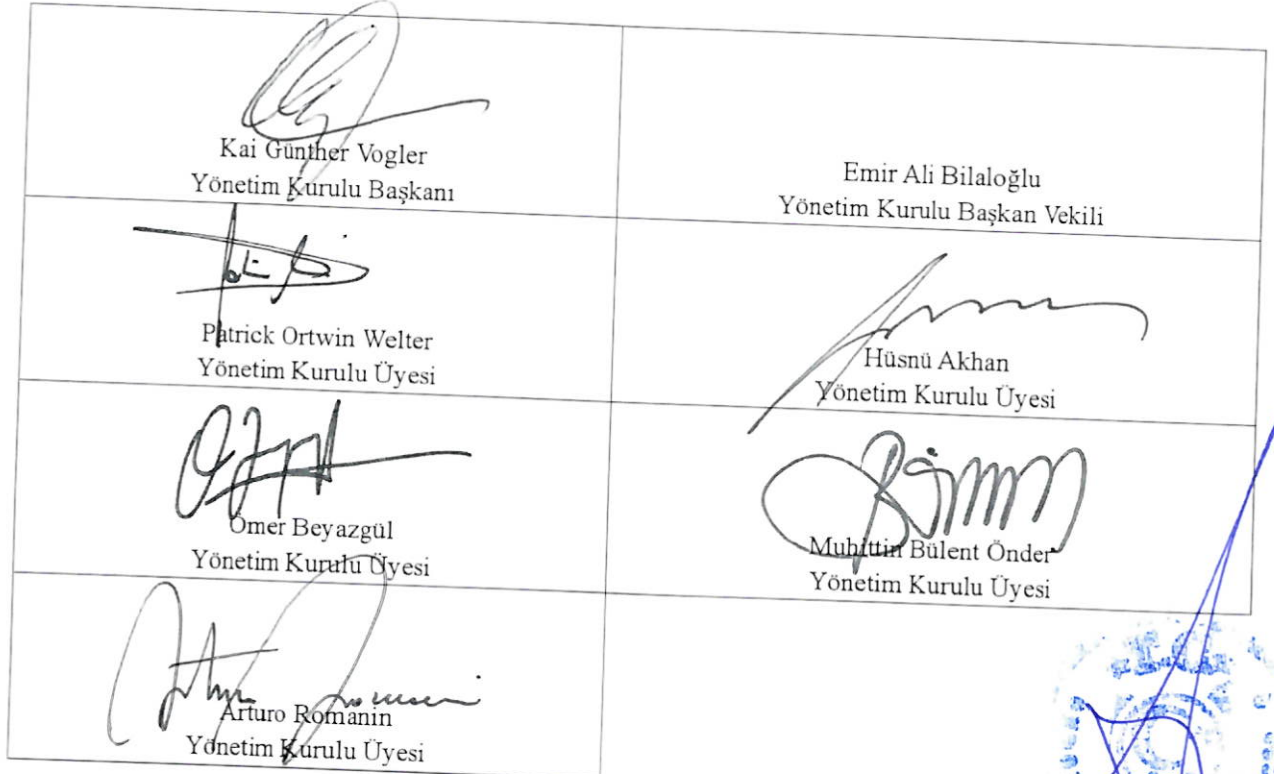 Kai Günther Vogler
Yönetim Kurulu Başkanı
Emir Ali Bilaloğlu
Yönetim Kurulu Başkan Vekili
Patrick Ortwin Welter
Yönetim Kurulu Üyesi
Hüsnü Akhan
Yönetim Kurulu Üyesi
Ömer Beyazgül
Yönetim Kurulu Üyesi
Muhittin Bülent Önder
Yönetim Kurulu Üyesi
Arturo Romanin
Yönetim Kurulu Üyesi